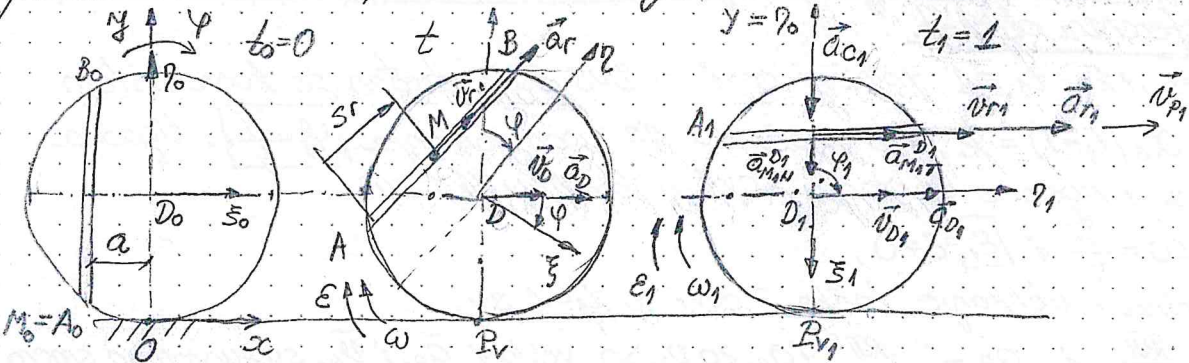 y φ t₀=0
B₀ η₀
D₀ ξ₀
a
M₀=A₀ O x
t B a⃗r η
Sʳ M v⃗r φ
v⃗D a⃗D
D φ
A ξ
ε ω Pᵥ
y=η₀ t₁=1
a⃗C1
A₁ v⃗r1 a⃗r1 v⃗P1
a⃗M₁N D₁ φ₁ a⃗M₁T D₁
D₁ v⃗D1 a⃗D1 η₁
ε₁ ω₁ ξ₁
Pᵥ₁